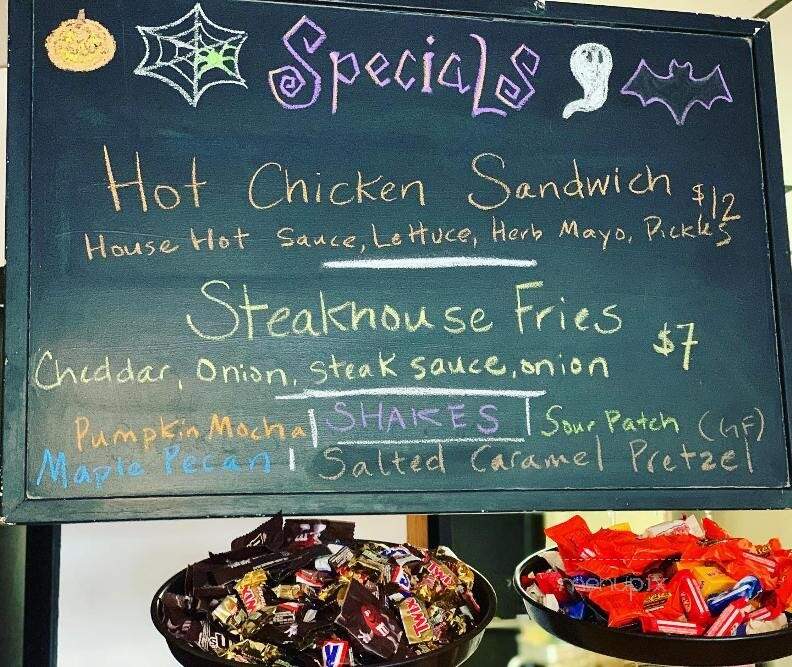 Specials
Hot Chicken Sandwich $12
House Hot Sauce, Lettuce, Herb Mayo, Pickles
Steakhouse Fries $7
Cheddar, Onion, steak sauce, onion
Pumpkin Mocha | SHAKES | Sour Patch (GF)
Maple Pecan | Salted Caramel Pretzel
TWIX